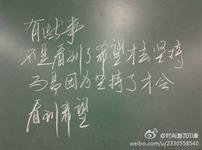 有些事
不是看到了希望才去坚持
而是因为坚持了才会
看到希望
@时尚潮流印象
weibo.com/u/2330558540